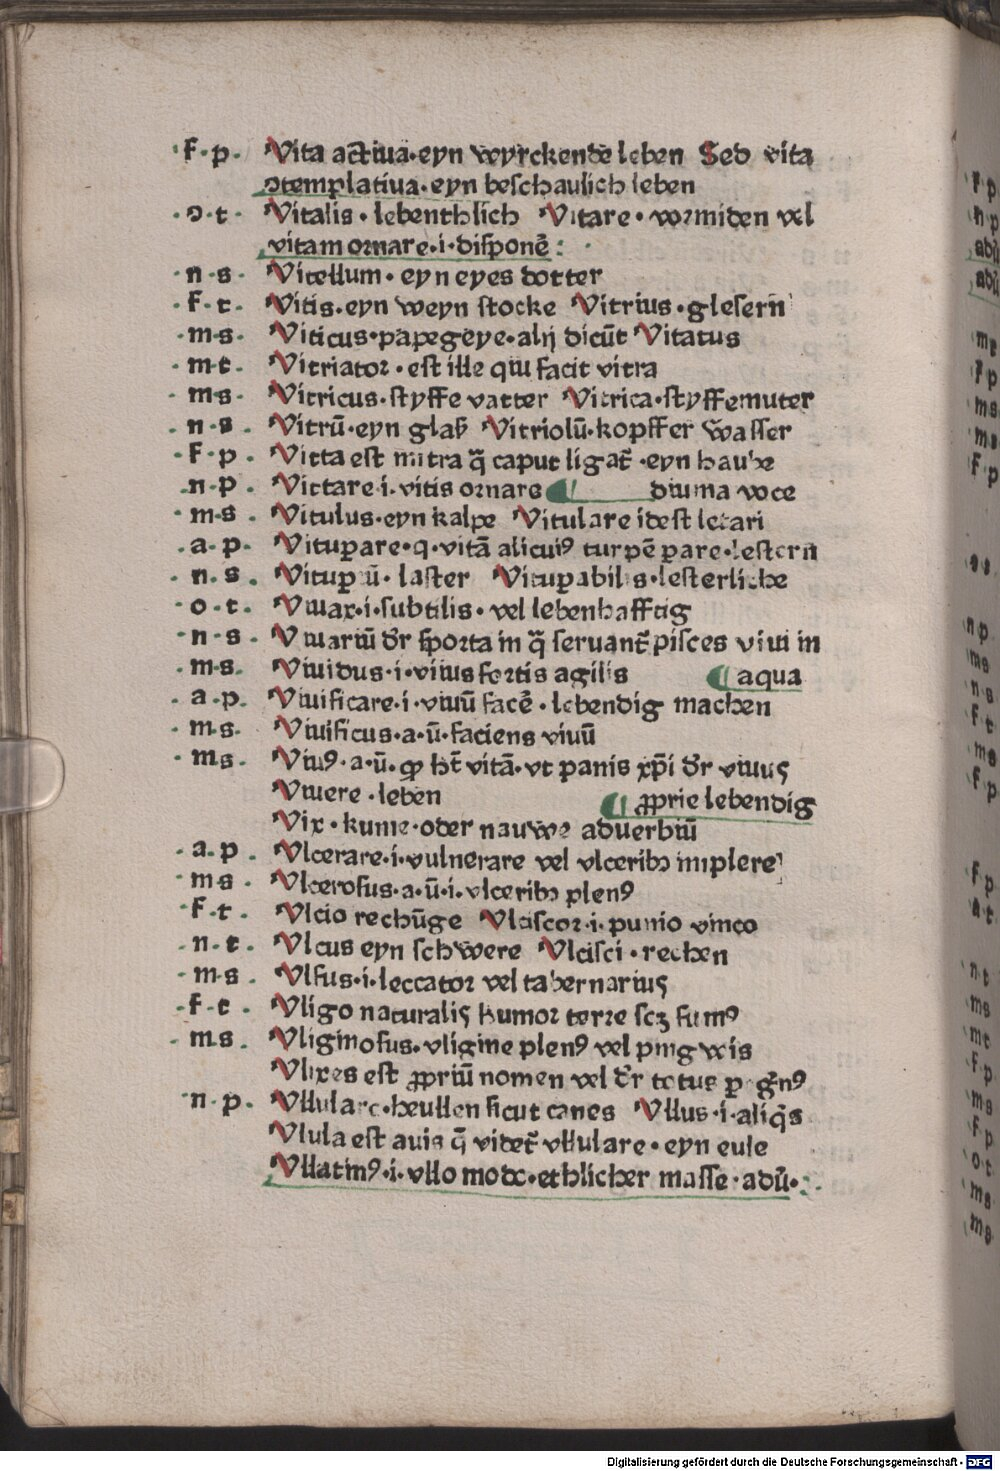 f·p· Vita actiua·eyn wyrckende leben Sed vita
ꝯtemplatiua·eyn beschaulich leben
·o·t· Vitalis·lebenthlich Vitare·vormiden vel
vitam ornare·i·disponē:
·n·s· Vitellum·eyn eyes dotter
·f·t· Vitis·eyn weyn stocke Vitrius·glesern
·m·s· Viticus·papegeye·alij dicūt Vitatus
·m·t· Vitriator·est ille qui facit vitra
·m·s· Vitricus·styffe vatter Vitrica·styffemuter
·n·s· Vitrū·eyn glaß Vitriolū·kopffer wasser
·f·p· Vitta est mitra q̄ caput ligat̄·eyn haube
·n·p· Vittare·i·vitis ornare diuina voce
m·s· Vitulus·eyn kalpe Vitulare idest letari
·a·p· Vituꝑare·q·vitā alicuiꝰ turpē ꝑare·lestern
·n·s· Vituꝑiū·laster Vituꝑabilis·lesterliche
·o·t· Viuax·i·subtilis·vel lebenhafftig
·n·s· Viuariū dr̄ sporta in q̄ seruant̄ pisces viui in
·m·s· Viuidus·i·viuus fortis agilis aqua
·a·p· Viuificare·i·viuū facē·lebendig machen
·m·s· Viuificus·a·ū·faciens viuū
·m·s· Viuꝰ·a·ū· ht̄ vitā·vt panis xp̄i dr̄ viuus
Viuere·leben ꝓprie lebendig
Vix·kume·oder nauwe aduerbiū
·a·p· Vlcerare·i·vulnerare vel vlceribꝫ implere
m·s· Vlcerosus·a·ū·i·vlceribꝫ plenꝰ
·f·t· Vlcio rechūge Vlciscor·i·punio vinco
·n·t· Vlcus eyn schwere Vlcisci·rechen
·m·s· Vlfus·i·leccator vel tabernarius
·f·t· Vligo naturalis humor terre scꝫ fumꝰ
·m·s· Vliginosus·vligine plenꝰ vel pingwis
Vlixes est ꝓpriū nomen vel dr̄ totus
·n·p· Vllulare·heullen sicut canes Vllus·i·aliq̄s
Vlula est auis q̄ videt̄ vllulare·eyn eule
Vllatinꝰ·i·vllo modo·ethlicher masse·adū·
Digitalisierung gefördert durch die Deutsche Forschungsgemeinschaft - DFG